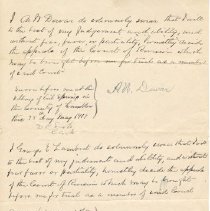 I A W Dewar do solemnly swear that I will
to the best of my judgement and ability, and
without fear, favor or partiality, honestly decide
the appeals of the Court of Revision which
may be brought before me for trial as a member
of said Court
Sworn before me at the
of
the County of
this 27 day May 1911
Clerk
A W. Dewar
I George E Lambert do solemnly swear that I will
to the best of my judgement and ability, and without
fear favor or partiality, honestly decide the appeals
of the Court of Revision which may be brought
before me for trial as a member of said Court